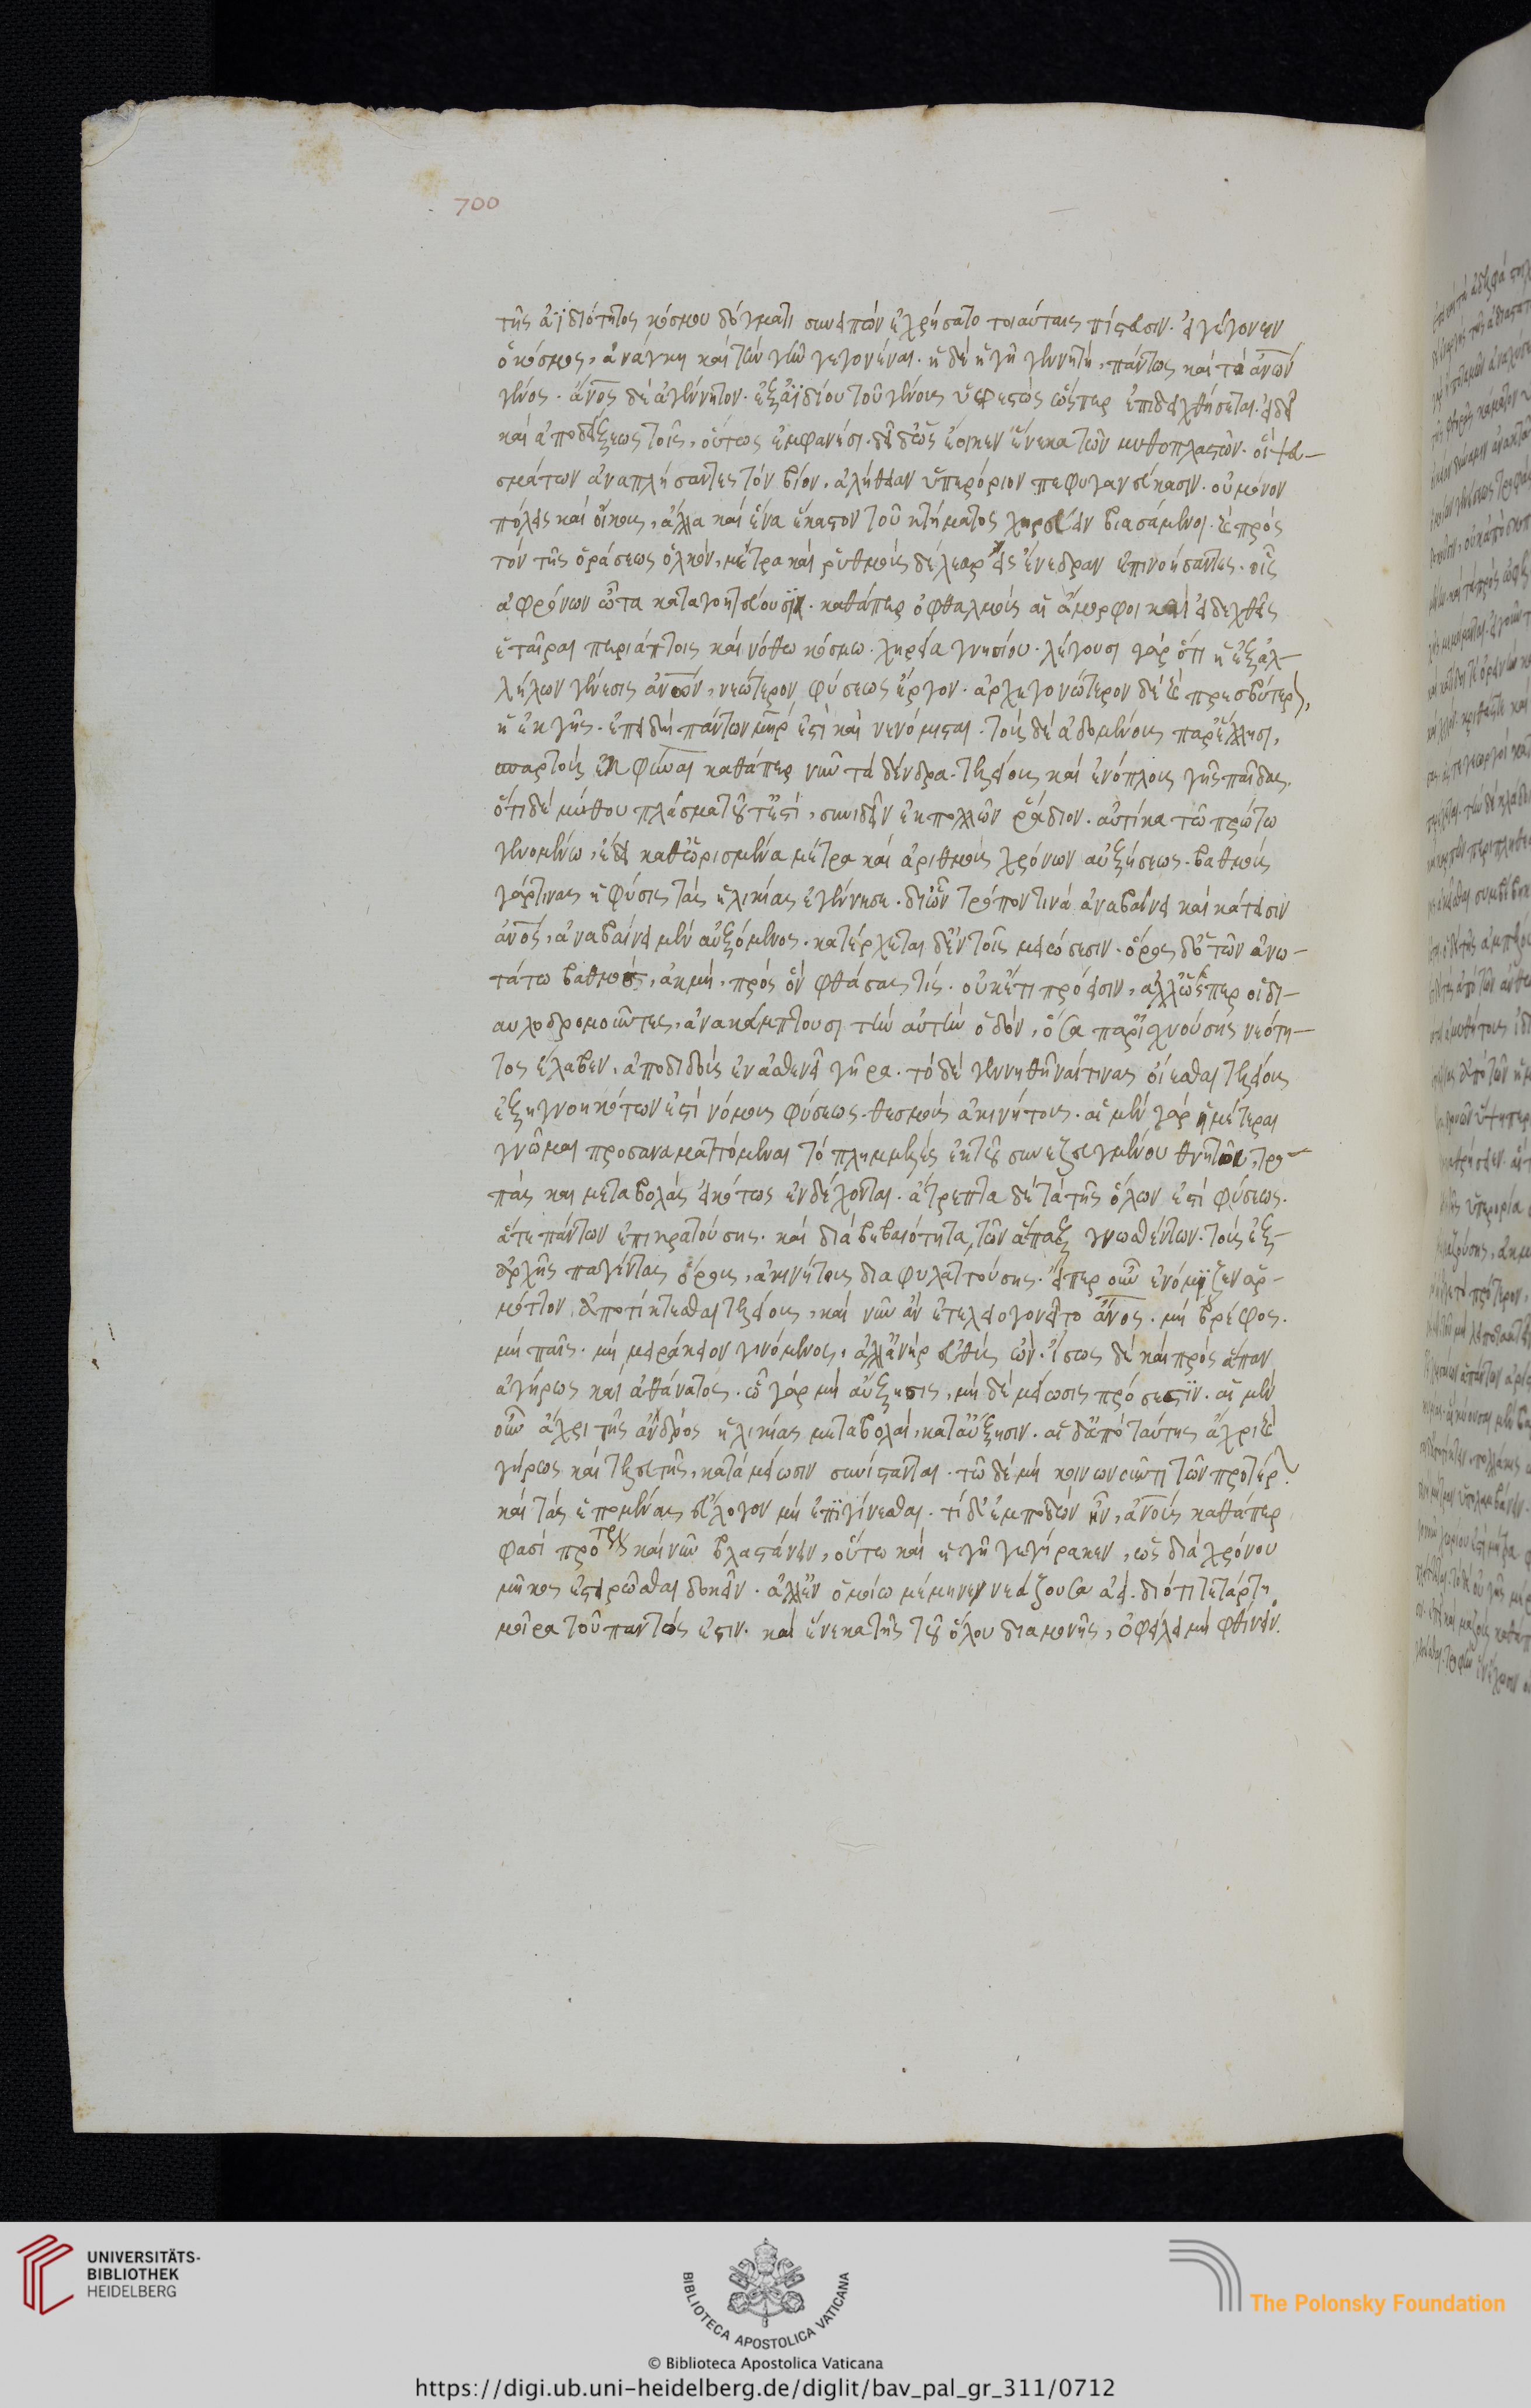 τῆς ἀϊδιότητος κόσμου δόγματι συνειπὼν ἐχρήσατο τοιαύταις πίστεσιν. εἰ γέγονεν
ὁ κόσμος, ἀνάγκη καὶ τὴν γῆν γεγονέναι. ἡ δὲ ἡ γῆ γεννητή, πάντως καὶ τὸ ἀνων
γένος. ἄνος δὲ ἀγέννητον. ἐξ ἀϊδίου τοῦ γένους ὑφεστὼς ὥσπερ ἐπιδειχθήσεται. εἰ δεῖ
καὶ ἀποδείξεως τοῖς, οὕτως ἐμφανέσι. δεῖ δ' ὡς ἔοικεν ἕνεκα τῶν μυθοπλαστῶν. οἳ ψευ-
σμάτων ἀναπλήσαντες τὸν βίον, ἀλήθειαν ὑπερόριον πεφυγαδεύκασιν. οὐ μόνον
πόλεις καὶ οἴκους, ἀλλὰ καὶ ἕνα ἕκαστον τοῦ κτήματος χηρεύειν βιασάμενοι. καὶ πρὸς
τὸν τῆς ὁράσεως ὁλκόν, μέτρα καὶ ῥυθμοὺς δέλεαρ εἰς ἐνέδραν ἐπινοήσαντες. οἷς
ἀφρόνων ὦτα καταγοητεύουσιν. καθάπερ ὀφθαλμοὺς αἱ ἄμορφοι καὶ εἰδεχθεῖς
ἑταῖραι περιάπτοις καὶ νόθω κόσμω. χηρεία γνησίου. λέγουσι γὰρ ὅτι ἡ ἐξ ἀλ-
λήλων γένεσις ἀνων, νεώτερον φύσεως ἔργον. ἀρχηγονώτερον δὲ καὶ πρεσβύτερον,
ἡ ἐκ γῆς. ἐπειδὴ πάντων μηρ ἐστὶ καὶ νενόμισται. τοὺς δὲ ἀδομένους παρ' ἕλλησι,
σπαρτοὺς ἐκφῦναι καθάπερ νῦν τὰ δένδρα. τελείους καὶ ἐνόπλους γῆς παῖδας.
ὅτι δὲ μύθου πλάσμα τοῦτ' ἐστὶ, συνιδεῖν ἐκ πολλῶν ῥάδιον. αὐτίκα τῶ πρώτω
γενομένω, ἔδει καθ' ὡρισμένα μέτρα καὶ ἀριθμοὺς χρόνων αὐξήσεως. βαθμοὺς
γάρ τινας ἡ φύσις τὰς ἡλικίας ἐγέννησε. δι' ὧν τρόπον τινὰ ἀναβαίνει καὶ κάτεισιν
ἀνος, ἀναβαίνει μὲν αὐξόμενος. κατέρχεται δ' ἐν τοῖς μειώσεσιν. ὅρος δὲ τῶν ἀνω-
τάτω βαθμός, ἀκμή. πρὸς ὃν φθάσας τίς. οὐκέτι πρόεισιν, ἀλλ' ὥσπερ οἱ δι-
αυλοδρομοῦντες, ἀνακάμπτουσι τὴν αὐτὴν ὁδόν, ὅσα παρ' ἰσχνούσης νεότη-
τος ἔλαβεν, ἀποδιδοὺς ἐν ἀσθενεῖ γήρα. τὸ δὲ γεννηθῆναί τινας οἴεσθαι τελείους
ἐξ ἠγνοηκότων ἐστὶ νόμους φύσεως. θεσμοὺς ἀκινήτους. αἱ μὲν γὰρ ἡμέτεραι
γνῶμαι προσαναματτόμεναι τὸ πλημμελὲς ἐκ τοῦ συνεζευγμένου θνητοῦ, τρο-
πὰς και μεταβολὰς εἰκότως ἐνδέχονται. ἄτρεπτα δὲ τὰ τῆς ὅλων ἐστὶ φύσεως.
ἅτε πάντων ἐπικρατούσης. καὶ διὰ βεβαιότητα τῶν ἅπαξ γνωσθέντων. τοὺς ἐξ-
ἀρχῆς παγέντας ὅρους, ἀκινήτους διαφυλαττούσης. εἴπερ οὖν ἐνόμιζεν ἁρ-
μόττον ἀποτίκτεσθαι τελείους, καὶ νῦν ἂν ἐτελειογονεῖτο ἄνος. μὴ βρέφος.
μὴ παῖς. μὴ μειράκιον γινόμενος, ἀλλ' ἀνὴρ εὐθὺς ὤν. ἴσως δὲ καὶ πρὸς ἅπαν
ἀγήρως καὶ ἀθάνατος. ὧ γὰρ μὴ αὔξησις, μὴ δὲ μείωσις πρόσεστιν. αἱ μὲν
οὖν ἄχρι τῆς ἀνδρὸς ἡλικίας μεταβολαί, κατ' αὔξησιν. αἱ δ' ἀπὸ ταύτης ἄχρι καὶ
γήρως καὶ τελευτῆς, κατὰ μείωσιν συνίστανται. τῶ δὲ μὴ κοινωνοῦντι τῶν προτέρων
καὶ τὰς ἑπομένας εὔλογον μὴ ἐπιγίνεσθαι. τί δ' ἐμποδὼν ἦν, ἀνους καθάπερ
φασὶ πρότερον καὶ νῦν βλαστάνειν, οὕτω καὶ ἡ γῆ γεγήρακεν, ὡς διὰ χρόνου
μῆκος ἐστειρῶσθαι δοκεῖν. ἀλλ' ἐν ὁμοίω μέμηνεν νεάζουσα ἀεί. διότι τετάρτη
μοῖρα τοῦ παντός ἐστιν. καὶ ἕνεκα τῆς τοῦ ὅλου διαμονῆς, ὀφείλει μὴ φθίνειν.
700
UNIVERSITÄTS-
BIBLIOTHEK
HEIDELBERG
BIBLIOTECA APOSTOLICA VATICANA
The Polonsky Foundation
© Biblioteca Apostolica Vaticana
https://digi.ub.uni-heidelberg.de/diglit/bav_pal_gr_311/0712